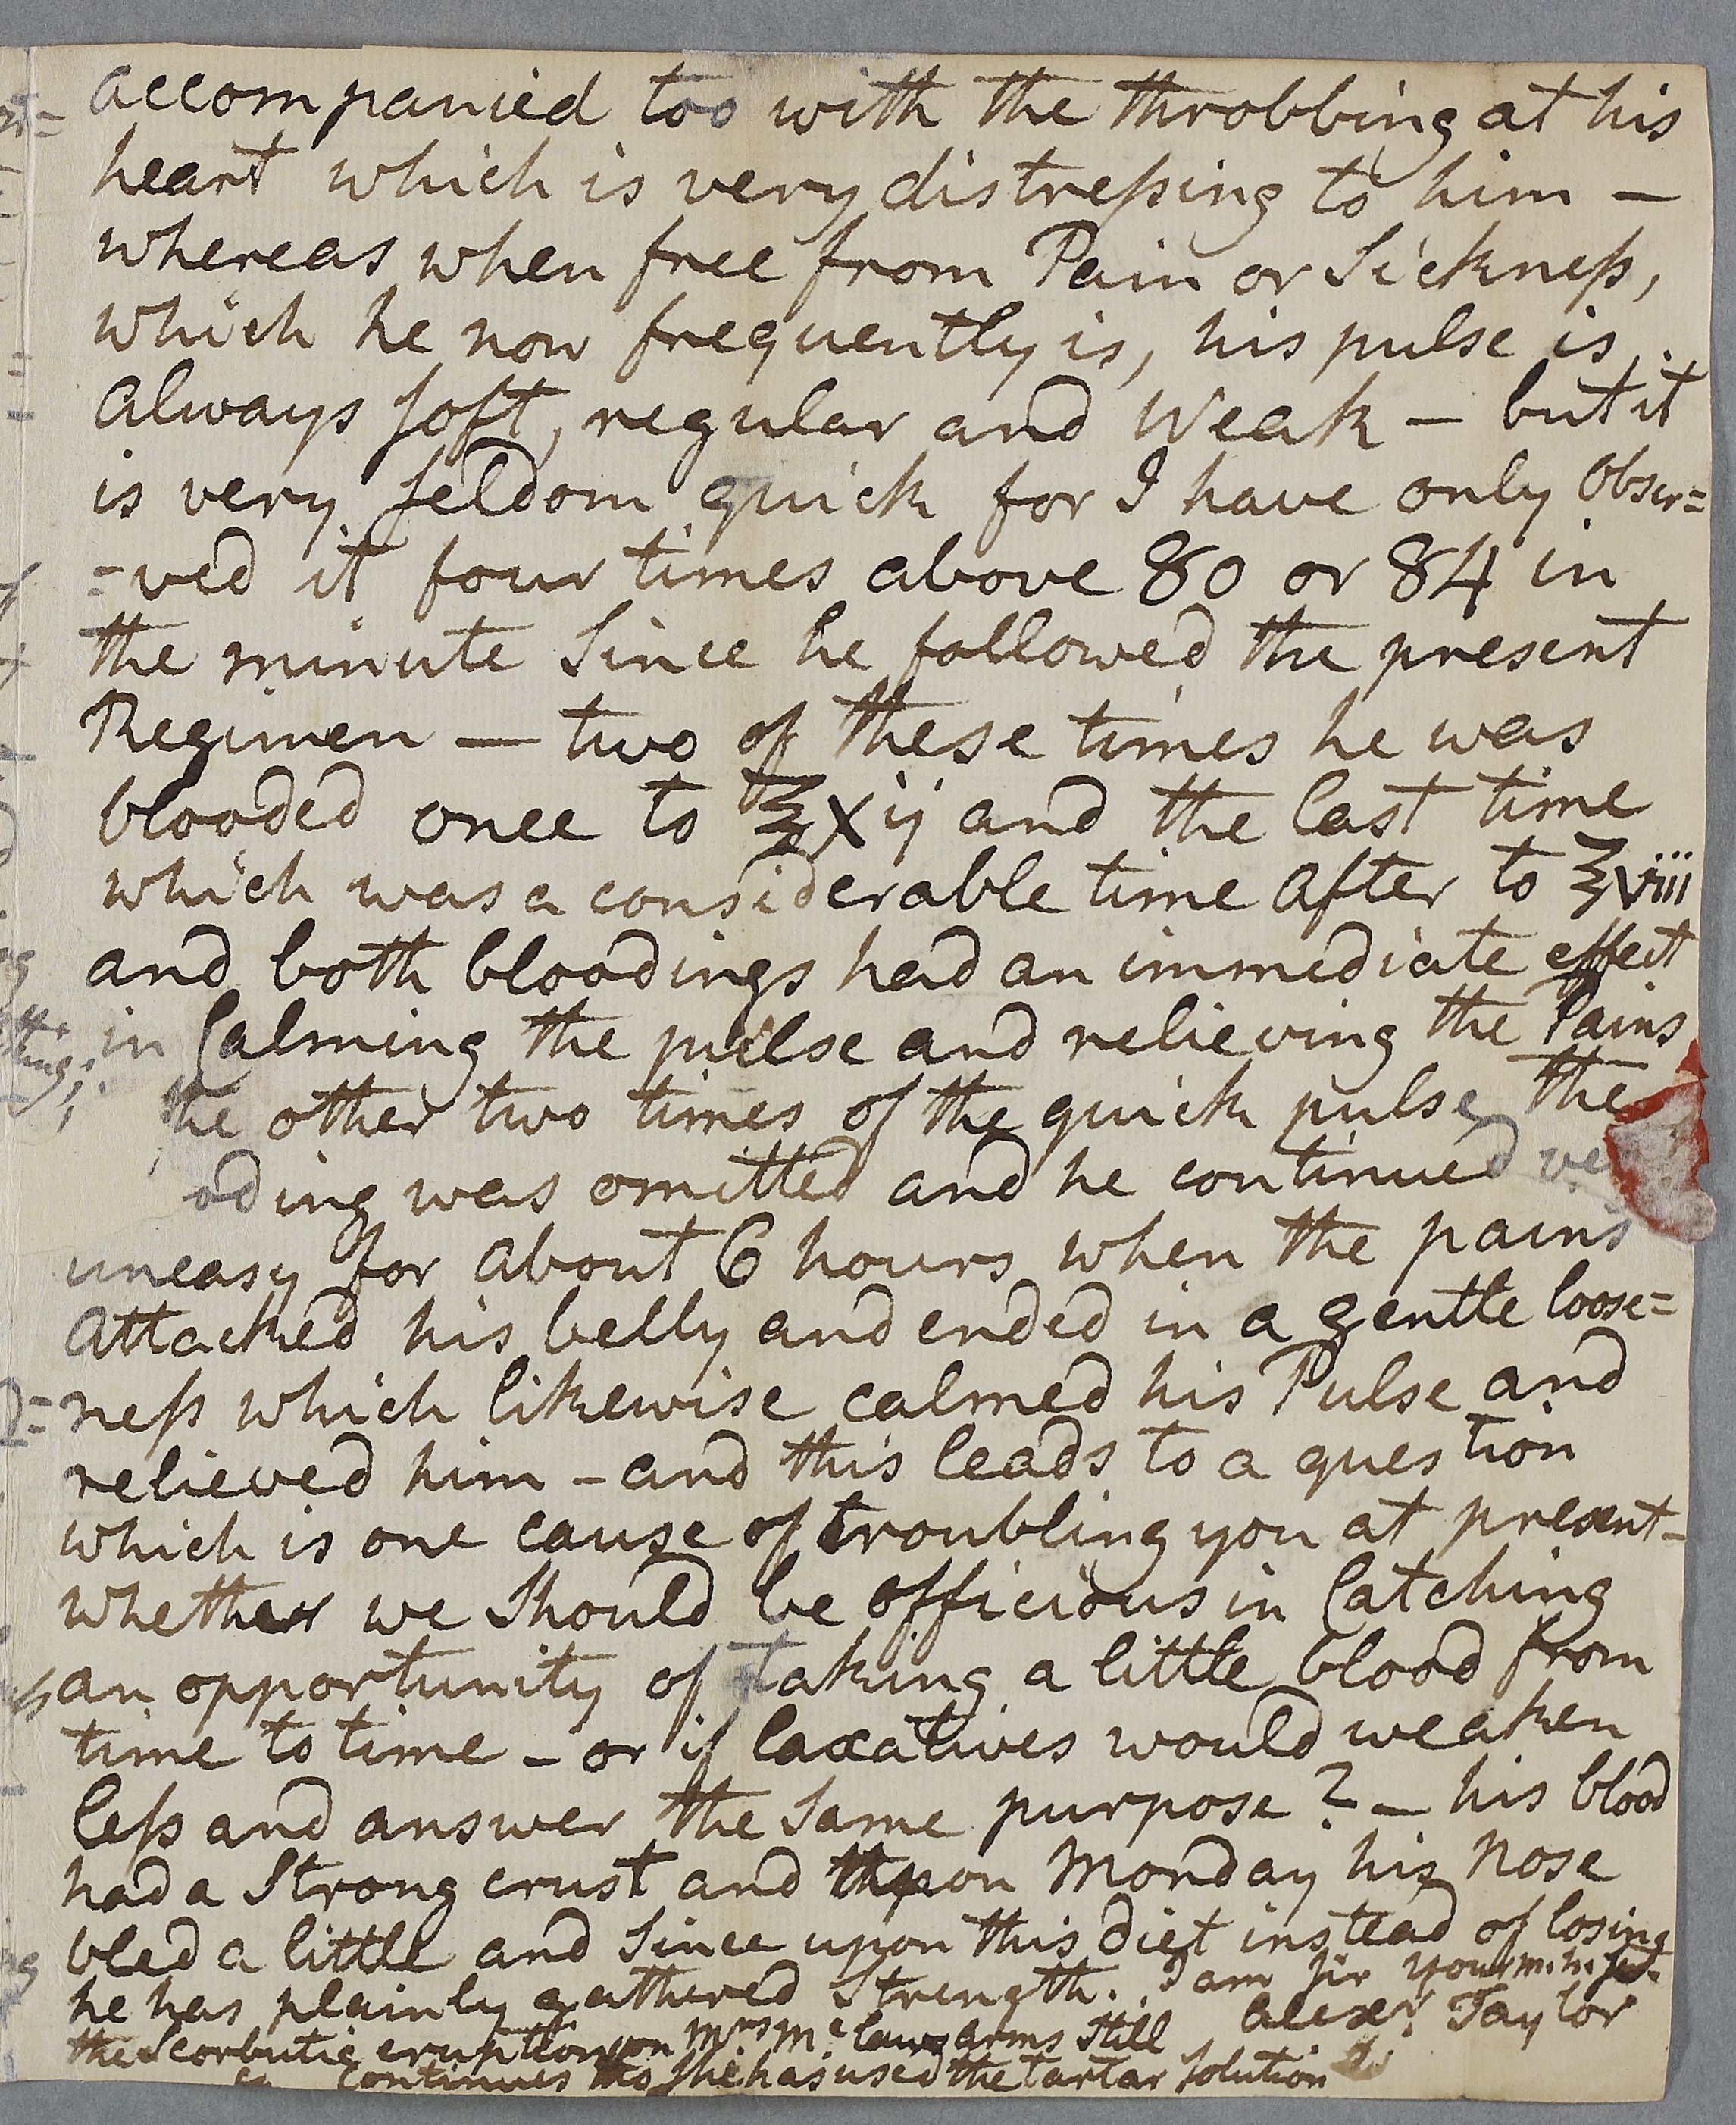 accompanied too with the throbbing at his
heart which is very distreßing to him —
whereas when free from Pain or Sickneß,
which he now frequently is, his pulse is
always soft, regular and Weak — but it
is very seldom quick for I have only Obser=
=ved it four times above 80 or 84 in
the minute Since he followed the present
Regimen — two of these times he was
blooded once to ℥xij and the last time
which was a considerable time after to ℥viii
and both bloodings had an immediate effect
in Calming the pulse and relieving the Pains
the other two times of the quick pulse, the
oding was omitted and he continued
uneasy for about 6 hours when the pains
attacked his belly and ended in a gentle loose=
neß which likewise calmed his Pulse and
relieved him – and this leads to a question
which is one cause of troubling you at present –
whether we Should be officious in Catching
an opportunity of taking a little blood from
time to time – or if laxatives would weaken
leß and answer the Same purpose? – his blood
had a Strong crust and upon Monday his Nose
bled a little and Since upon this diet instead of losing
he has plainly gathered Strength. I am Sir your m. h. Sert.
Alexr. Taylor
the Scorbutic eruption on Mrs. Mc laws arms Still
continues tho She has used the tartar Solution